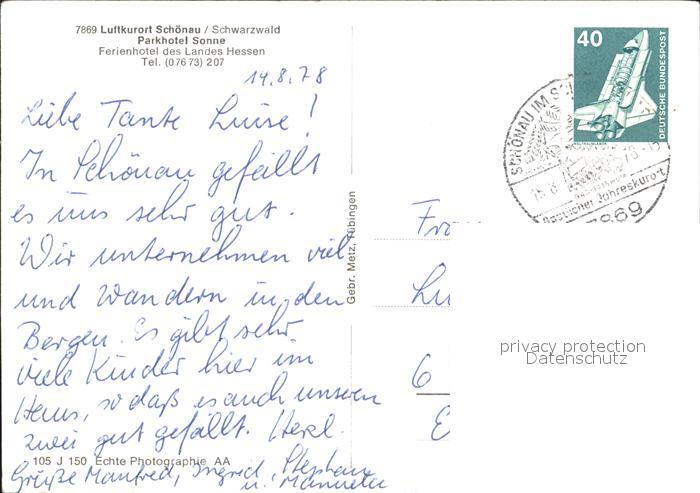 7869 Luftkurort Schönau / Schwarzwald
Parkhotel Sonne
Ferienhotel des Landes Hessen
Tel. (07673) 207
14.8.78
Liebe Tante Luise!
In Schönau gefällt
es uns sehr gut.
Wir unternehmen viel
und wandern in den
Bergen. Es gibt sehr
viele Kinder hier im
Haus, so daß es auch unseren
zwei gut gefällt. Herzl.
Grüße Manfred, Ingrid, Stephan
u. Manuela
105 J 150 Echte Photographie AA
Gebr. Metz, Tübingen
40
DEUTSCHE BUNDESPOST
WELTRAUMLABOR
SCHÖNAU IM SC
Jahreskurort
7869
Frä
Lu
6
privacy protection
Datenschutz